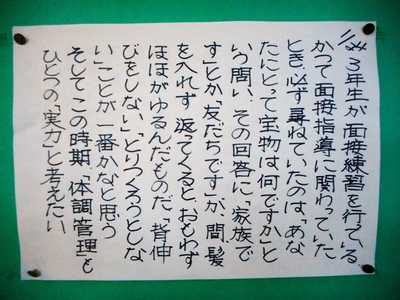 3年生が面接練習を行っている
かつて面接指導に関わっていた
とき、必ず尋ねていたのは「あな
たにとって宝物は何ですか」と
いう問い、その回答に「家族で
す」とか「友だちです」が、間、髪
を入れず返ってくると、おもわず
ほほがゆるんだものだ「背伸
びをしない」「とりつくろうとしな
い」ことが一番かなと思う
そして、この時期、「体調管理」も
ひとつの「実力」と考えたい